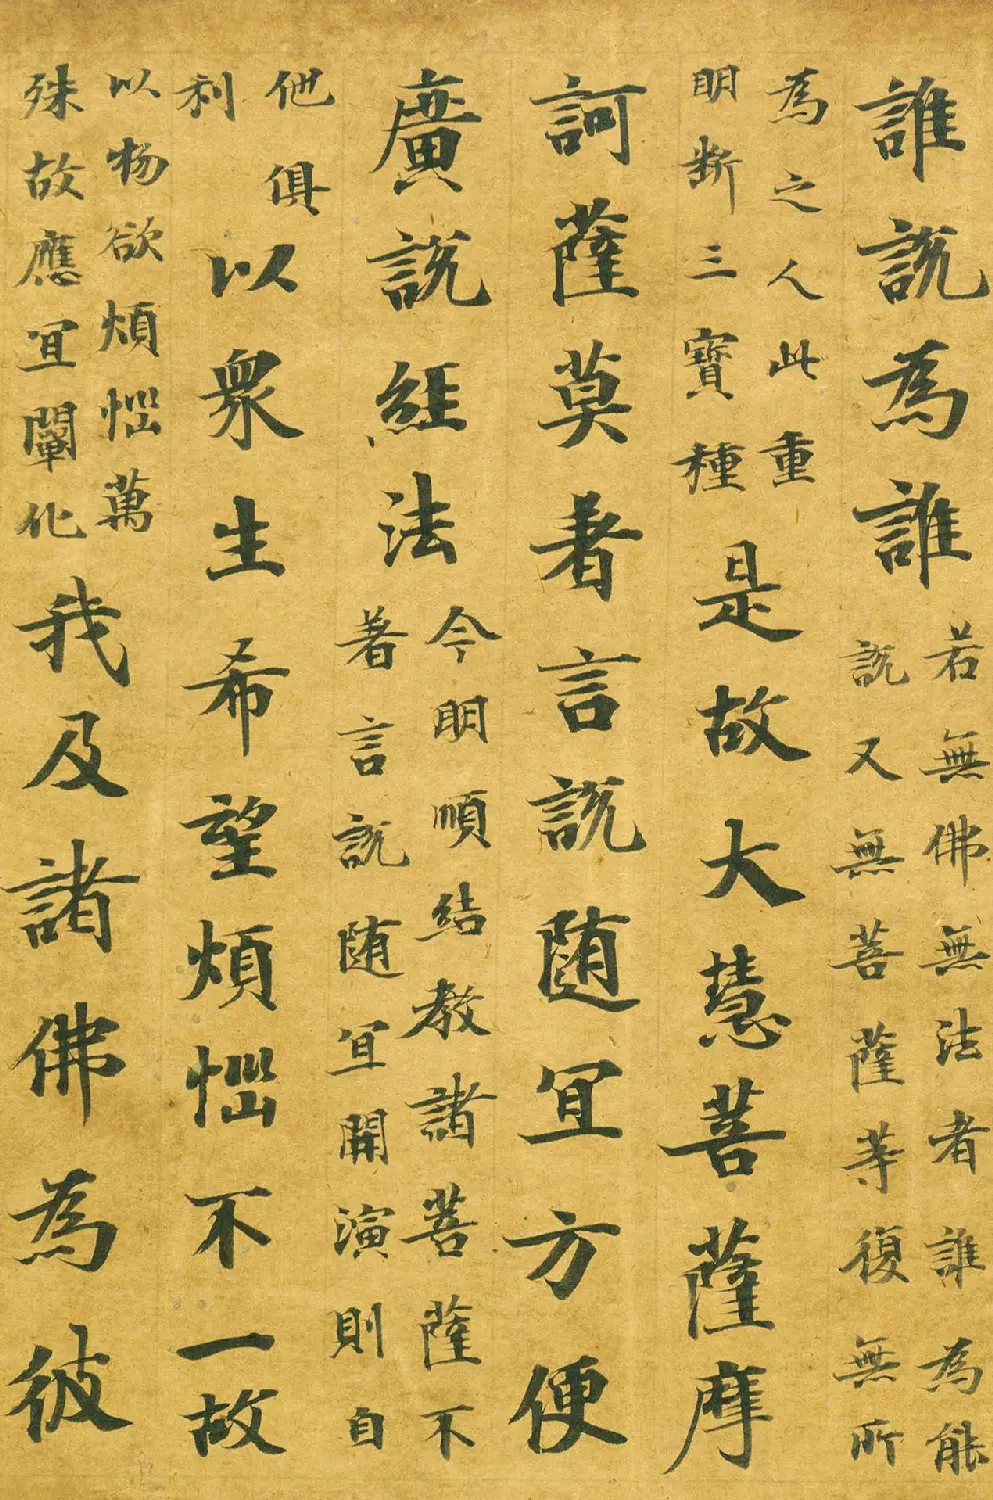 誰説為誰
若無佛無法者誰為能
説又無菩薩等復無所
為之人此重
明断三寶種
是故大慧菩薩摩
訶薩莫者言説随冝方便
廣説經法
今明順結教諸菩薩不
著言説随冝開演則自
他俱
利
以衆生希望煩惱不一故
以物欲煩惱萬
殊故應冝闡化
我及諸佛為彼